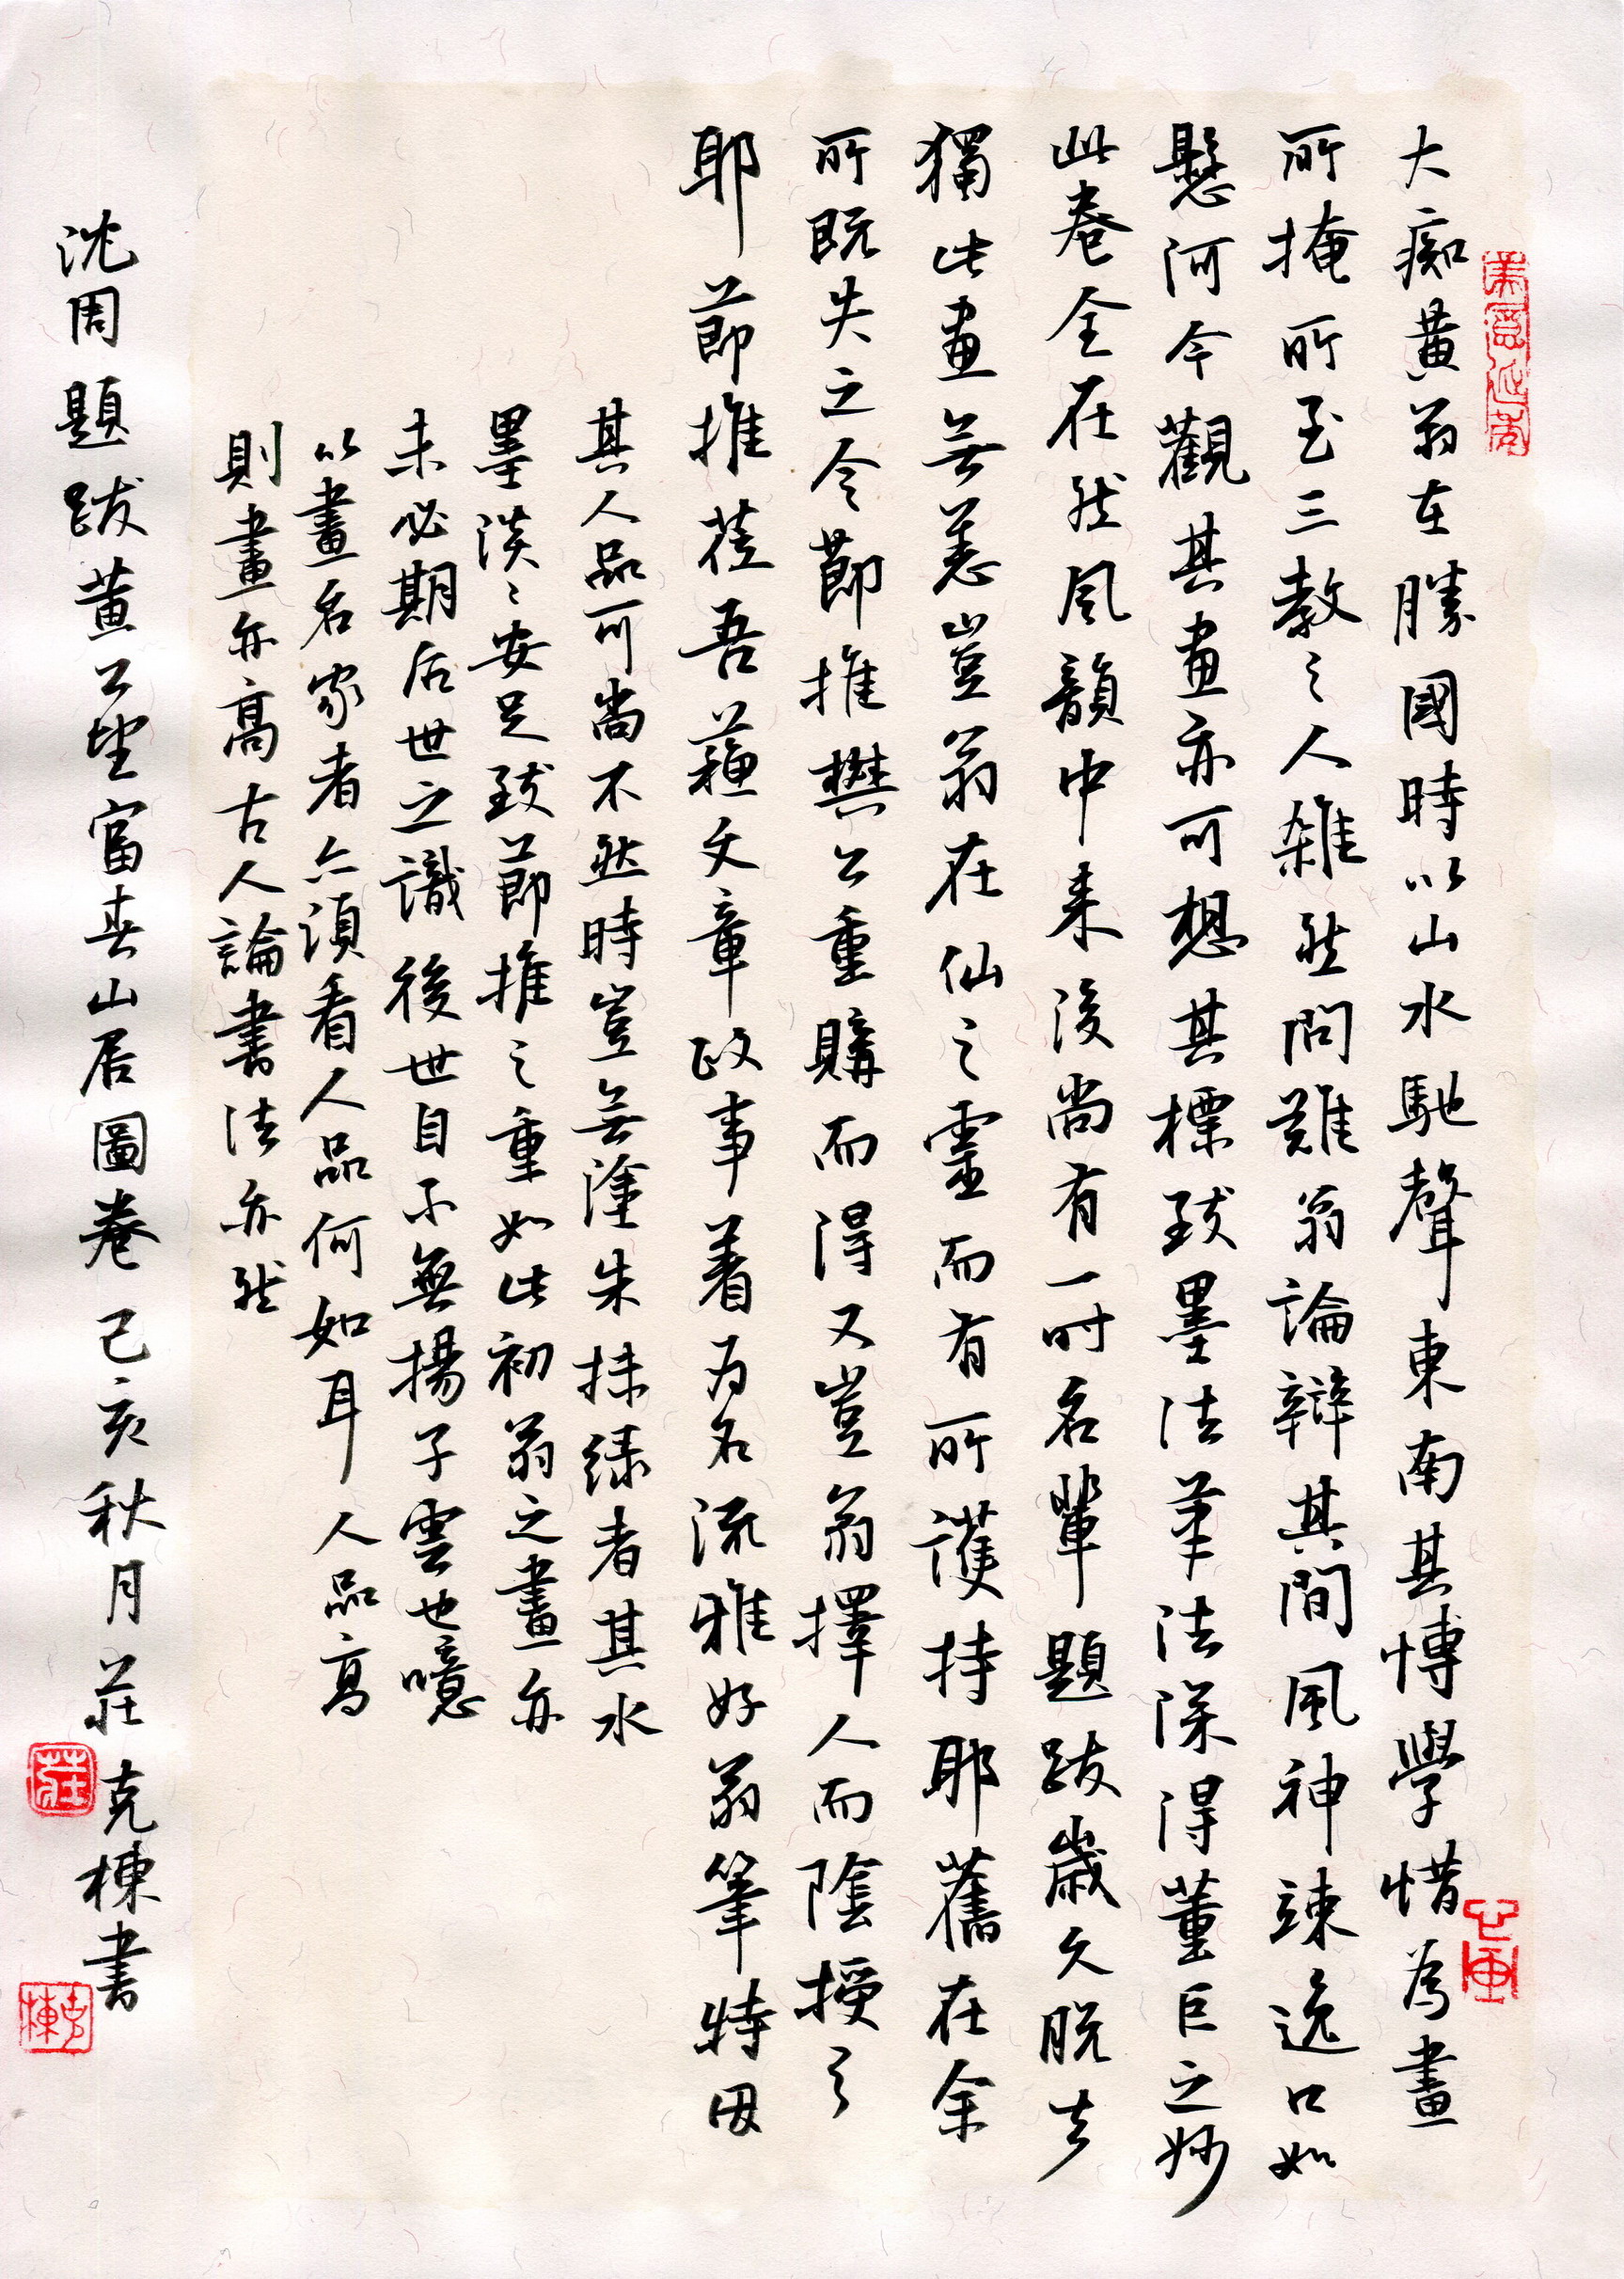 大癡黄翁在勝國時以山水馳聲東南其博學惜為畫
所掩所至三教之人雜然問難翁論辯其間風神竦逸口如
懸河今觀其畫亦可想其標致墨法筆法深得董巨之妙
此卷全在然風韻中来後尚有一时名輩題跋歲久脱去
獨此畫无恙豈翁在仙之靈而有所護持耶舊在余
所既失之今節推樊公重購而得又豈翁擇人而陰授之
耶節推莅吾蘇文章政事著为名流雅好翁筆特因
其人品可尚不然時豈无塗朱抹绿者其水
墨淡〻安足致節推之重如此初翁之畫亦
未必期后世之識後世自不無揚子雲也噫
以畫名家者亦須看人品何如耳人品高
則畫亦高古人論書法亦然
沈周題跋黄公望富春山居圖卷己亥秋月莊克棟書
莊
克棟